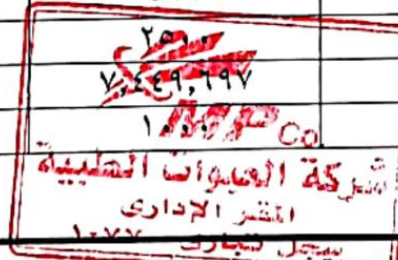 ٢٥٠٠
٧,٤٤٩,٦٩٧
١٠٠٠
MP Co
شركة العبوات الطبية
المقر الإدارى
سجل تجارى ١٠٧٧